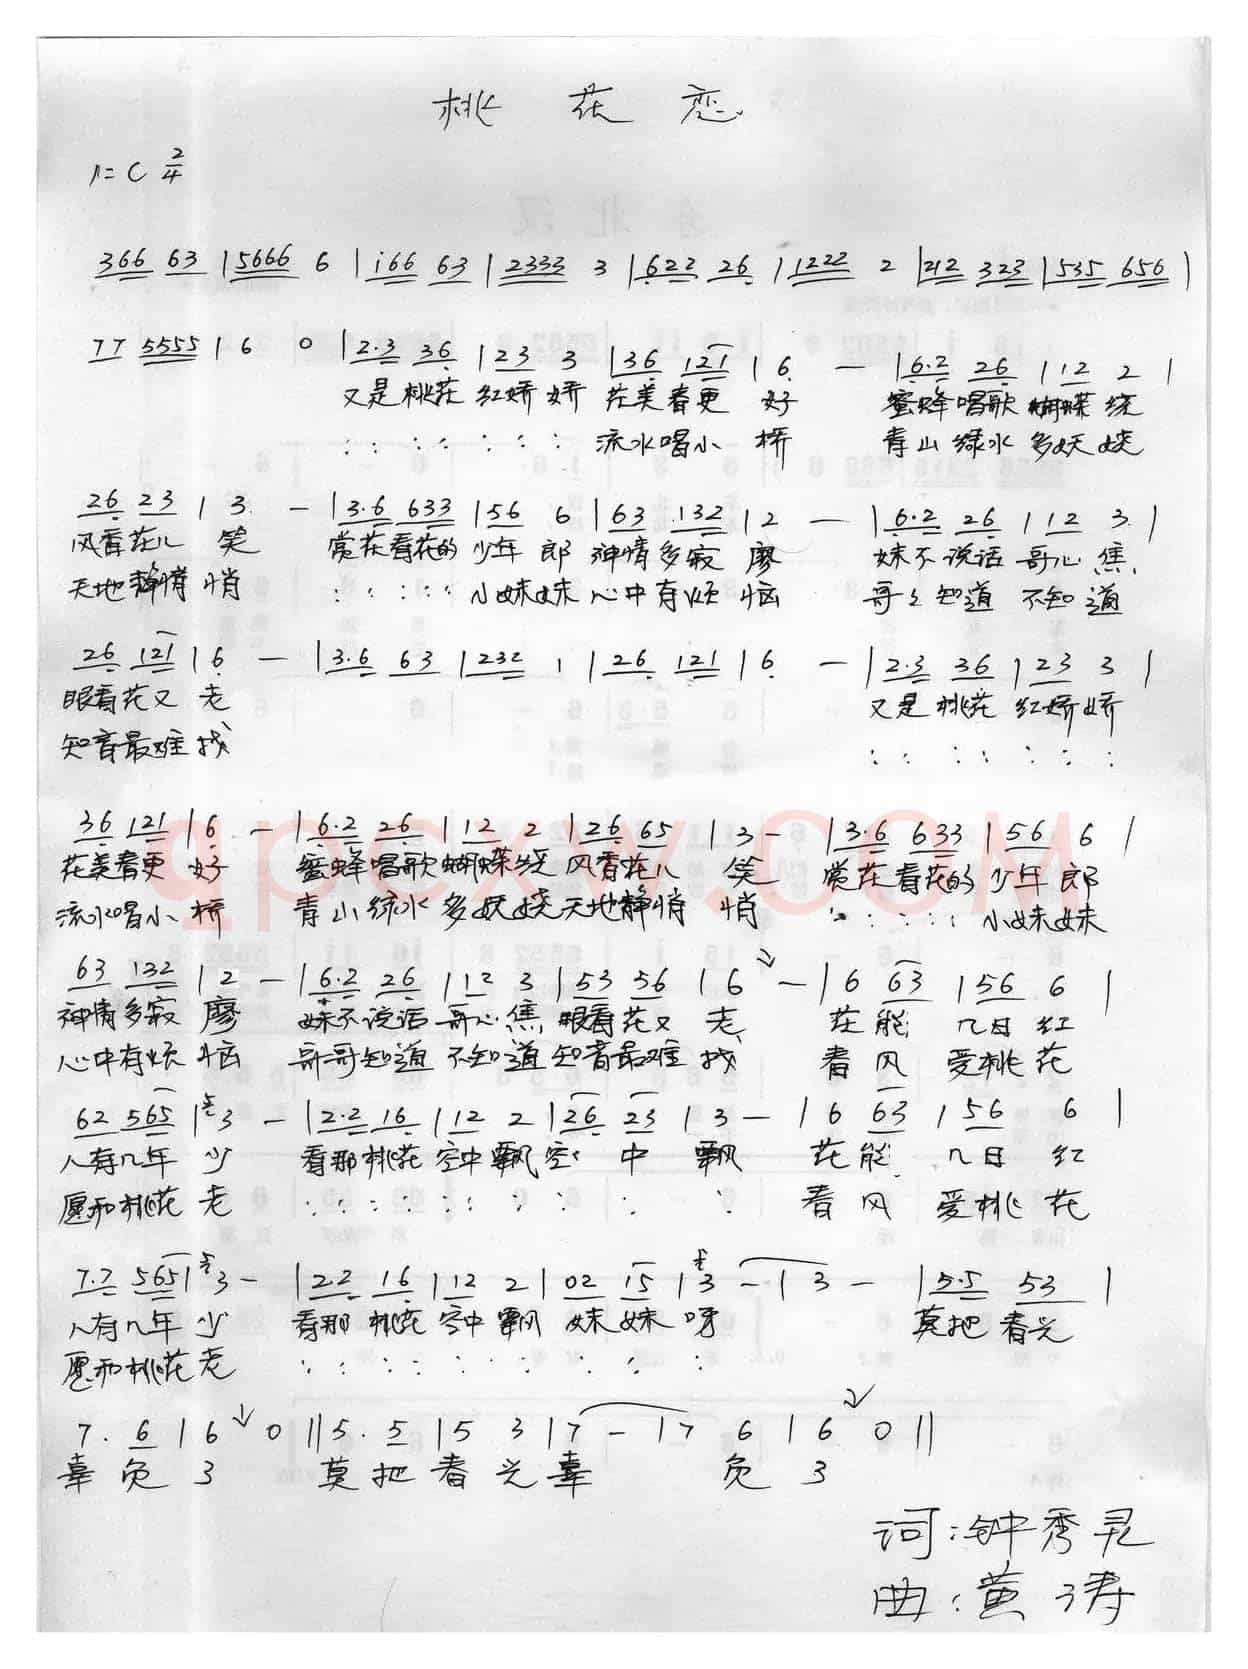 桃花恋
1=C 2/4
366 63 | 5666 6 | i66 63 | 2333 3 | 622 26 | 1222 2 | 212 323 | 535 656 |
77 5555 | 6 0 | 2·3 36 | 23 3 | 36 121 | 6 — | 6·2 26 | 12 2 |
又是桃花 红娇娇 花美春更 好 蜜蜂唱歌 蝴蝶绕
: : : : : : : 流水唱小 桥 青山绿水 多妖娆
26 23 | 3 — | 3·6 633 | 56 6 | 63 132 | 2 — | 6·2 26 | 12 3 |
风香花儿 笑 赏花看花的 少年 郎 神情多寂 廖 妹不说话 哥心焦
天地静悄 悄 : : : : : 小妹妹 心中有烦 恼 哥々知道 不知道
26 121 | 6 — | 3·6 63 | 232 1 | 26 121 | 6 — | 2·3 36 | 23 3 |
眼看花又 老 又是桃花 红娇娇
知音最难 找 : : : : : : :
36 121 | 6 — | 6·2 26 | 12 2 | 26 65 | 3 — | 3·6 633 | 56 6 |
花美春更 好 蜜蜂唱歌 蝴蝶绕 风香花儿 笑 赏花看花的 少年 郎
流水唱小 桥 青山绿水 多妖娆 天地静悄 悄 : : : : : 小妹妹
qpcxw.com
63 132 | 2 — | 6·2 26 | 12 3 | 53 56 | 6 — | 6 63 | 56 6 |
神情多寂 廖 妹不说话 哥心焦 眼看花又 老 花能 几日 红
心中有烦 恼 哥哥知道 不知道 知音最难 找 春风 爱桃花
62 565 | 3 — | 2·2 16 | 12 2 | 26 23 | 3 — | 6 63 | 56 6 |
人有几年 少 看那桃花 空中飘 空々 中 飘 花能 几日 红
愿和桃花 老 : : : : : : : : : : 春风 爱桃花
7·7 565 | 3 — | 2·2 16 | 12 2 | 02 15 | 3 — | 3 — | 5·5 53 |
人有几年 少 看那桃花 空中飘 妹妹 呀 莫把春光
愿和桃花 老 : : : : : : : : :
7· 6 | 6 0 || 5· 5 | 5 3 | 7 — | 7 6 | 6 0 ||
辜负了 莫把春光辜 负了
词:钟秀灵
曲:黄涛